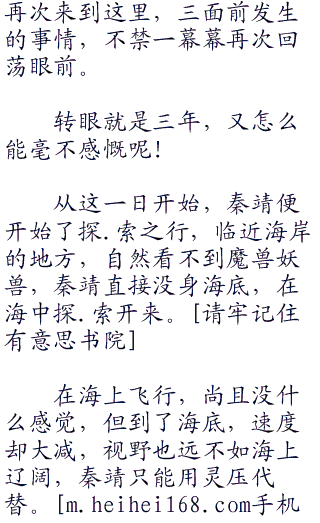 再次来到这里，三面前发生
的事情，不禁一幕幕再次回
荡眼前。
转眼就是三年，又怎么
能毫不感慨呢！
从这一日开始，秦靖便
开始了探.索之行，临近海岸
的地方，自然看不到魔兽妖
兽，秦靖直接没身海底，在
海中探.索开来。[请牢记住
有意思书院]
在海上飞行，尚且没什
么感觉，但到了海底，速度
却大减，视野也远不如海上
辽阔，秦靖只能用灵压代
替。[m.heihei168.com手机